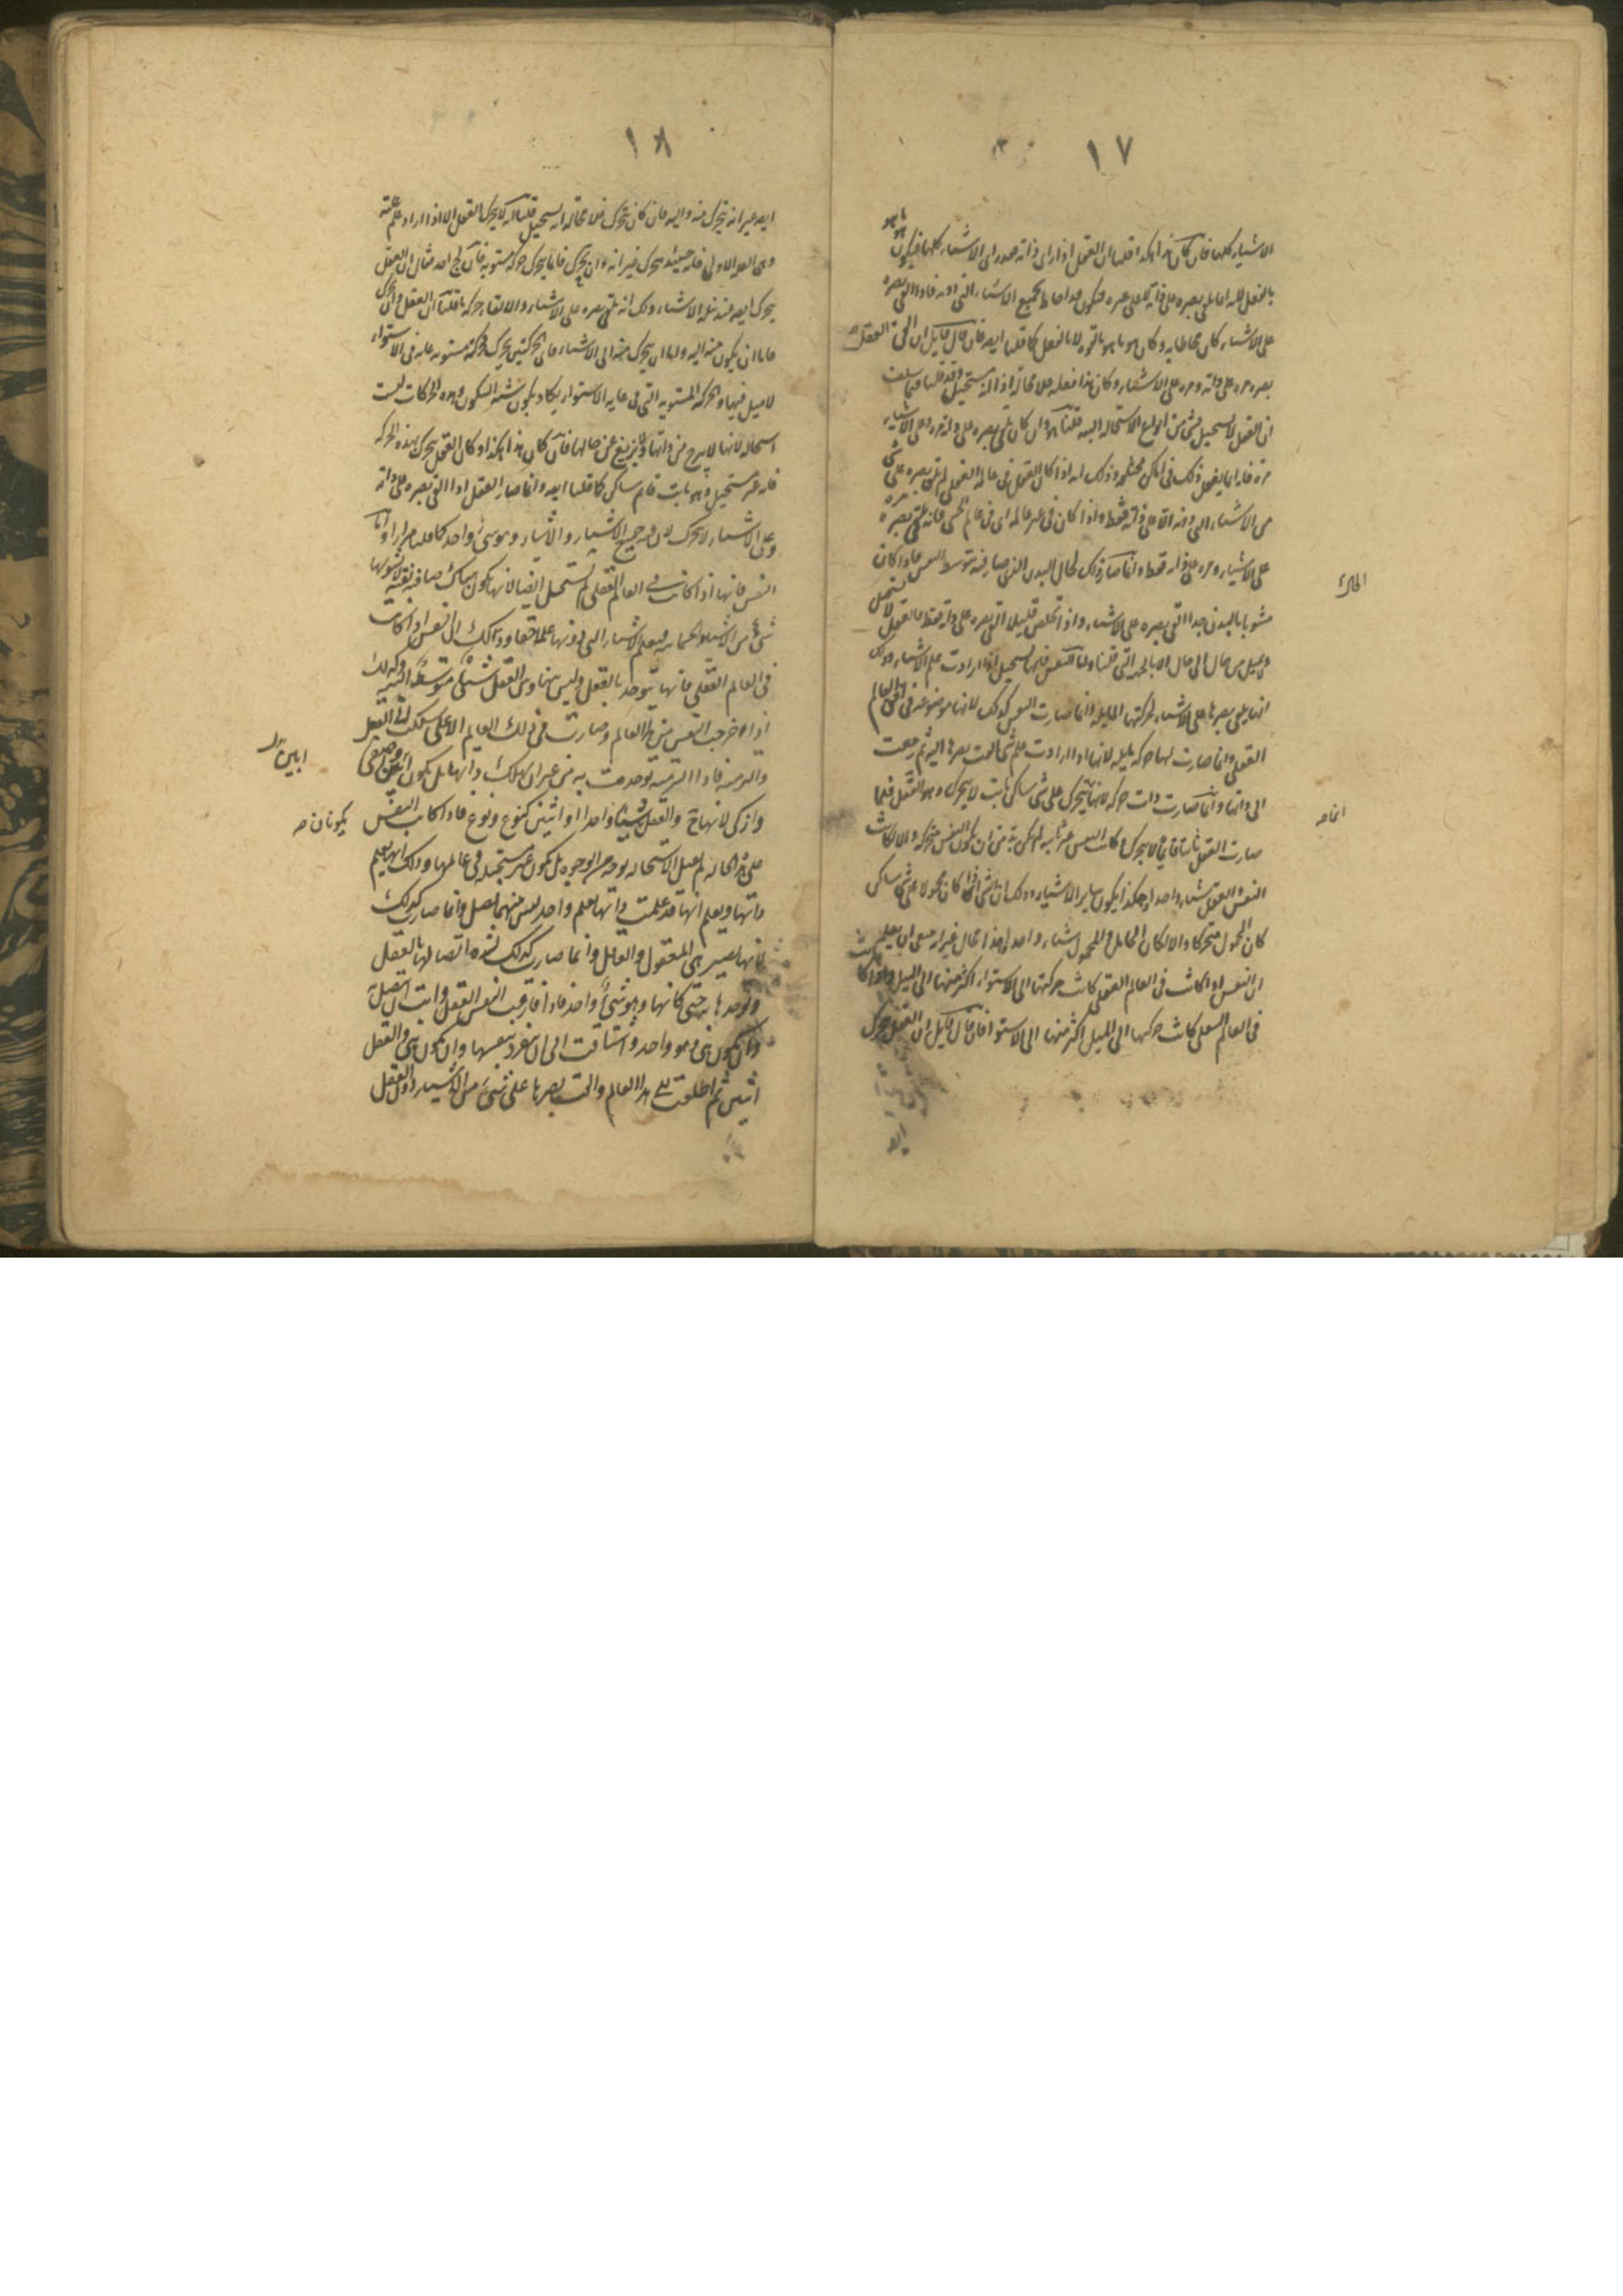 ١٧
ما هو هو
الاشياء كلها فان كان هذا هكذا قلنا ان العقل اذا راى ذاته فقد راى الاشياء كلها فيكون
بالفعل لانه انما يلقى بصره على ذاته لا على غيره فيكون قد احاط بجميع الاشياء التى دونه فاذا القى بصره
على الاشياء كان محاطا به وكان هو ما هو بالقوة لا بالفعل كما قلنا ايضا فان قال قايل ان القى العقل
بصره مره على ذاته ومره على الاشياء وكان هذا فعله فلا محاله اذا انه مستحيل وقد قلنا فيما سلف
ان العقل لا يستحيل بشى من انواع الاستحاله البته قلنا هو وان كان يلقى بصره على ذاته مره وعلى الاشياء
مرة فانه انما يفعل ذلك فى اماكن مختلفه وذلك انه اذا كان العقل فى عالمه العقلى لم يلق بصره على شى
من الاشياء التى دونه الا على ذاته فقط واذا كان فى غير عالمه اى فى عالم الحس فانه يلقى بصره مره
على الاشياء ومره على ذاته فقط وانما صار ذلك لحال البدن الذى صار فيه بتوسط النفس فاذا كان
مشوبا بالبدن جدا القى بصره على الاشياء واذا تخلص قليلا القى بصره على ذاته فقط فالعقل لا يستحيل
ولا يميل من حال الى حال الا بالجهة التى قلنا واما النفس فانها تستحيل اذا ارادت علم الاشياء وذلك
انها تلقى بصرها على الاشياء لحركتها المايله وانما صارت النفس كذلك لانها موضوعه فى افق العالم
العقلى وانما صارت لها حركه مايله لانها اذا ارادت علم شى القت بصرها اليه ثم رجعت
الى ذاتها وانما صارت ذات حركه لانها تتحرك على شى ساكن ثابت لا يتحرك وهو العقل فلما
صارت العقل ثابتا قايما لا يتحرك وكانت النفس غير ثابته لم يكن بد من ان يكون النفس متحركه والا لكانت
النفس والعقل شيئا واحدا وهكذا يكون ساير الاشياء وذلك ان الشى اذا كان محمولا على شى ساكن
كان المحمول متحركا والا لكان الحامل والمحمول شيئا واحدا وهذا محال غير انه ينبغى ان يعلم
ان النفس اذا كانت فى العالم العقلى كانت حركتها الى الاستواء اكثر منها الى الميل واذا كانت
فى العالم السفلى كانت حركتها الى الميل اكثر منها الى الاستواء فان قال قايل ان العقل يتحرك
ايضا
١٨
ايضا غير انه يتحرك منه واليه فان كان يتحرك فلا محاله انه يستحيل قلنا انه لا يتحرك العقل الا اذا اراد علم علته
وهى العله الاولى فانه حينئذ يتحرك غير انه وان تحرك فانما يتحرك حركه مستويه فان لج احد فقال ان العقل
يتحرك ايضا عند نيله الاشياء وذلك انه يلقى بصره على الاشياء والالقاء حركه ما قلنا ان العقل وان تحرك
فاما ان يكون منه اليه واما ان يتحرك منه الى الاشياء فاى الحركتين تحرك فحركته مستويه غايه فى الاستواء
لا ميل فيها والحركه المستويه التى فى غايه الاستواء يكاد يكون شبه السكون وهذه الحركات ليست
استحاله لانها لا يبرح من ذاتها ولا يزيغ عن حالها فان كان هذا هكذا وكان العقل يتحرك بهذه الحركه
فانه غير مستحيل وهو ثابت قايم ساكن كما قلنا ايضا وانما صار العقل اذا القى بصره على ذاته
وعلى الاشياء لا يتحرك لان فيه جميع الاشياء والاشياء وهو شئ واحد كما قلنا مرارا واما
النفس فانها اذا كانت فى العالم العقلى لم تستحيل ايضا لانها تكون هناك صافيه نقيه لا يشوبها
شئ من الاشياء الجسمانيه فيعلم الاشياء التى دونها علما حقا وذلك ان النفس اذا كانت
فى العالم العقلى فانها تتوحد بالعقل وليس بينها وبين العقل شئ متوسط البته وكذلك
اذا خرجت النفس من هذا العالم وصارت فى ذلك العالم الاعلى سلكت الى العقل
والتزمته فاذا التزمته توحدت به من غير ان يهلك ذاتها بل يكون ابين واصفى
وازكى لانها والعقل يكونان شيئا واحدا او اثنين كنوع ونوع فاذا كانت النفس
على هذه الحال لم تقبل الاستحاله بوجه من الوجوه بل تكون غير مستحيله فى عالمها وذلك انها تعلم
ذاتها وتعلم انها قد علمت ذاتها بعلم واحد ليس بينهما فصل وانما صارت كذلك
لانها تصير هى المعقول والعاقل وانما صارت كذلك لشده اتصالها بالعقل
وتوحدها به حتى كانها وهو شئ واحد فاذا فارقت النفس العقل وابت ان تتصل به
وان تكون هى وهو واحد واشتاقت الى ان تنفرد بنفسها وان تكون هى والعقل
اثنين ثم اطلعت على هذا العالم والقت بصرها على شئ من الاشياء دون العقل
يكونان